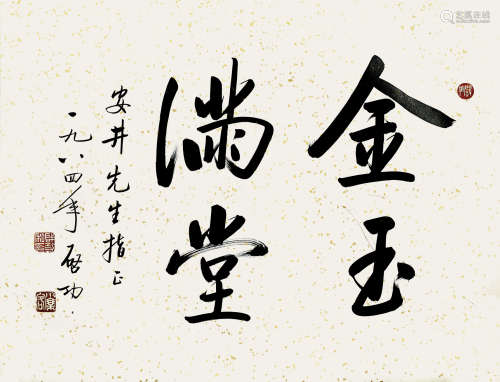 金玉
满堂
安井先生指正
一九八四年 启功